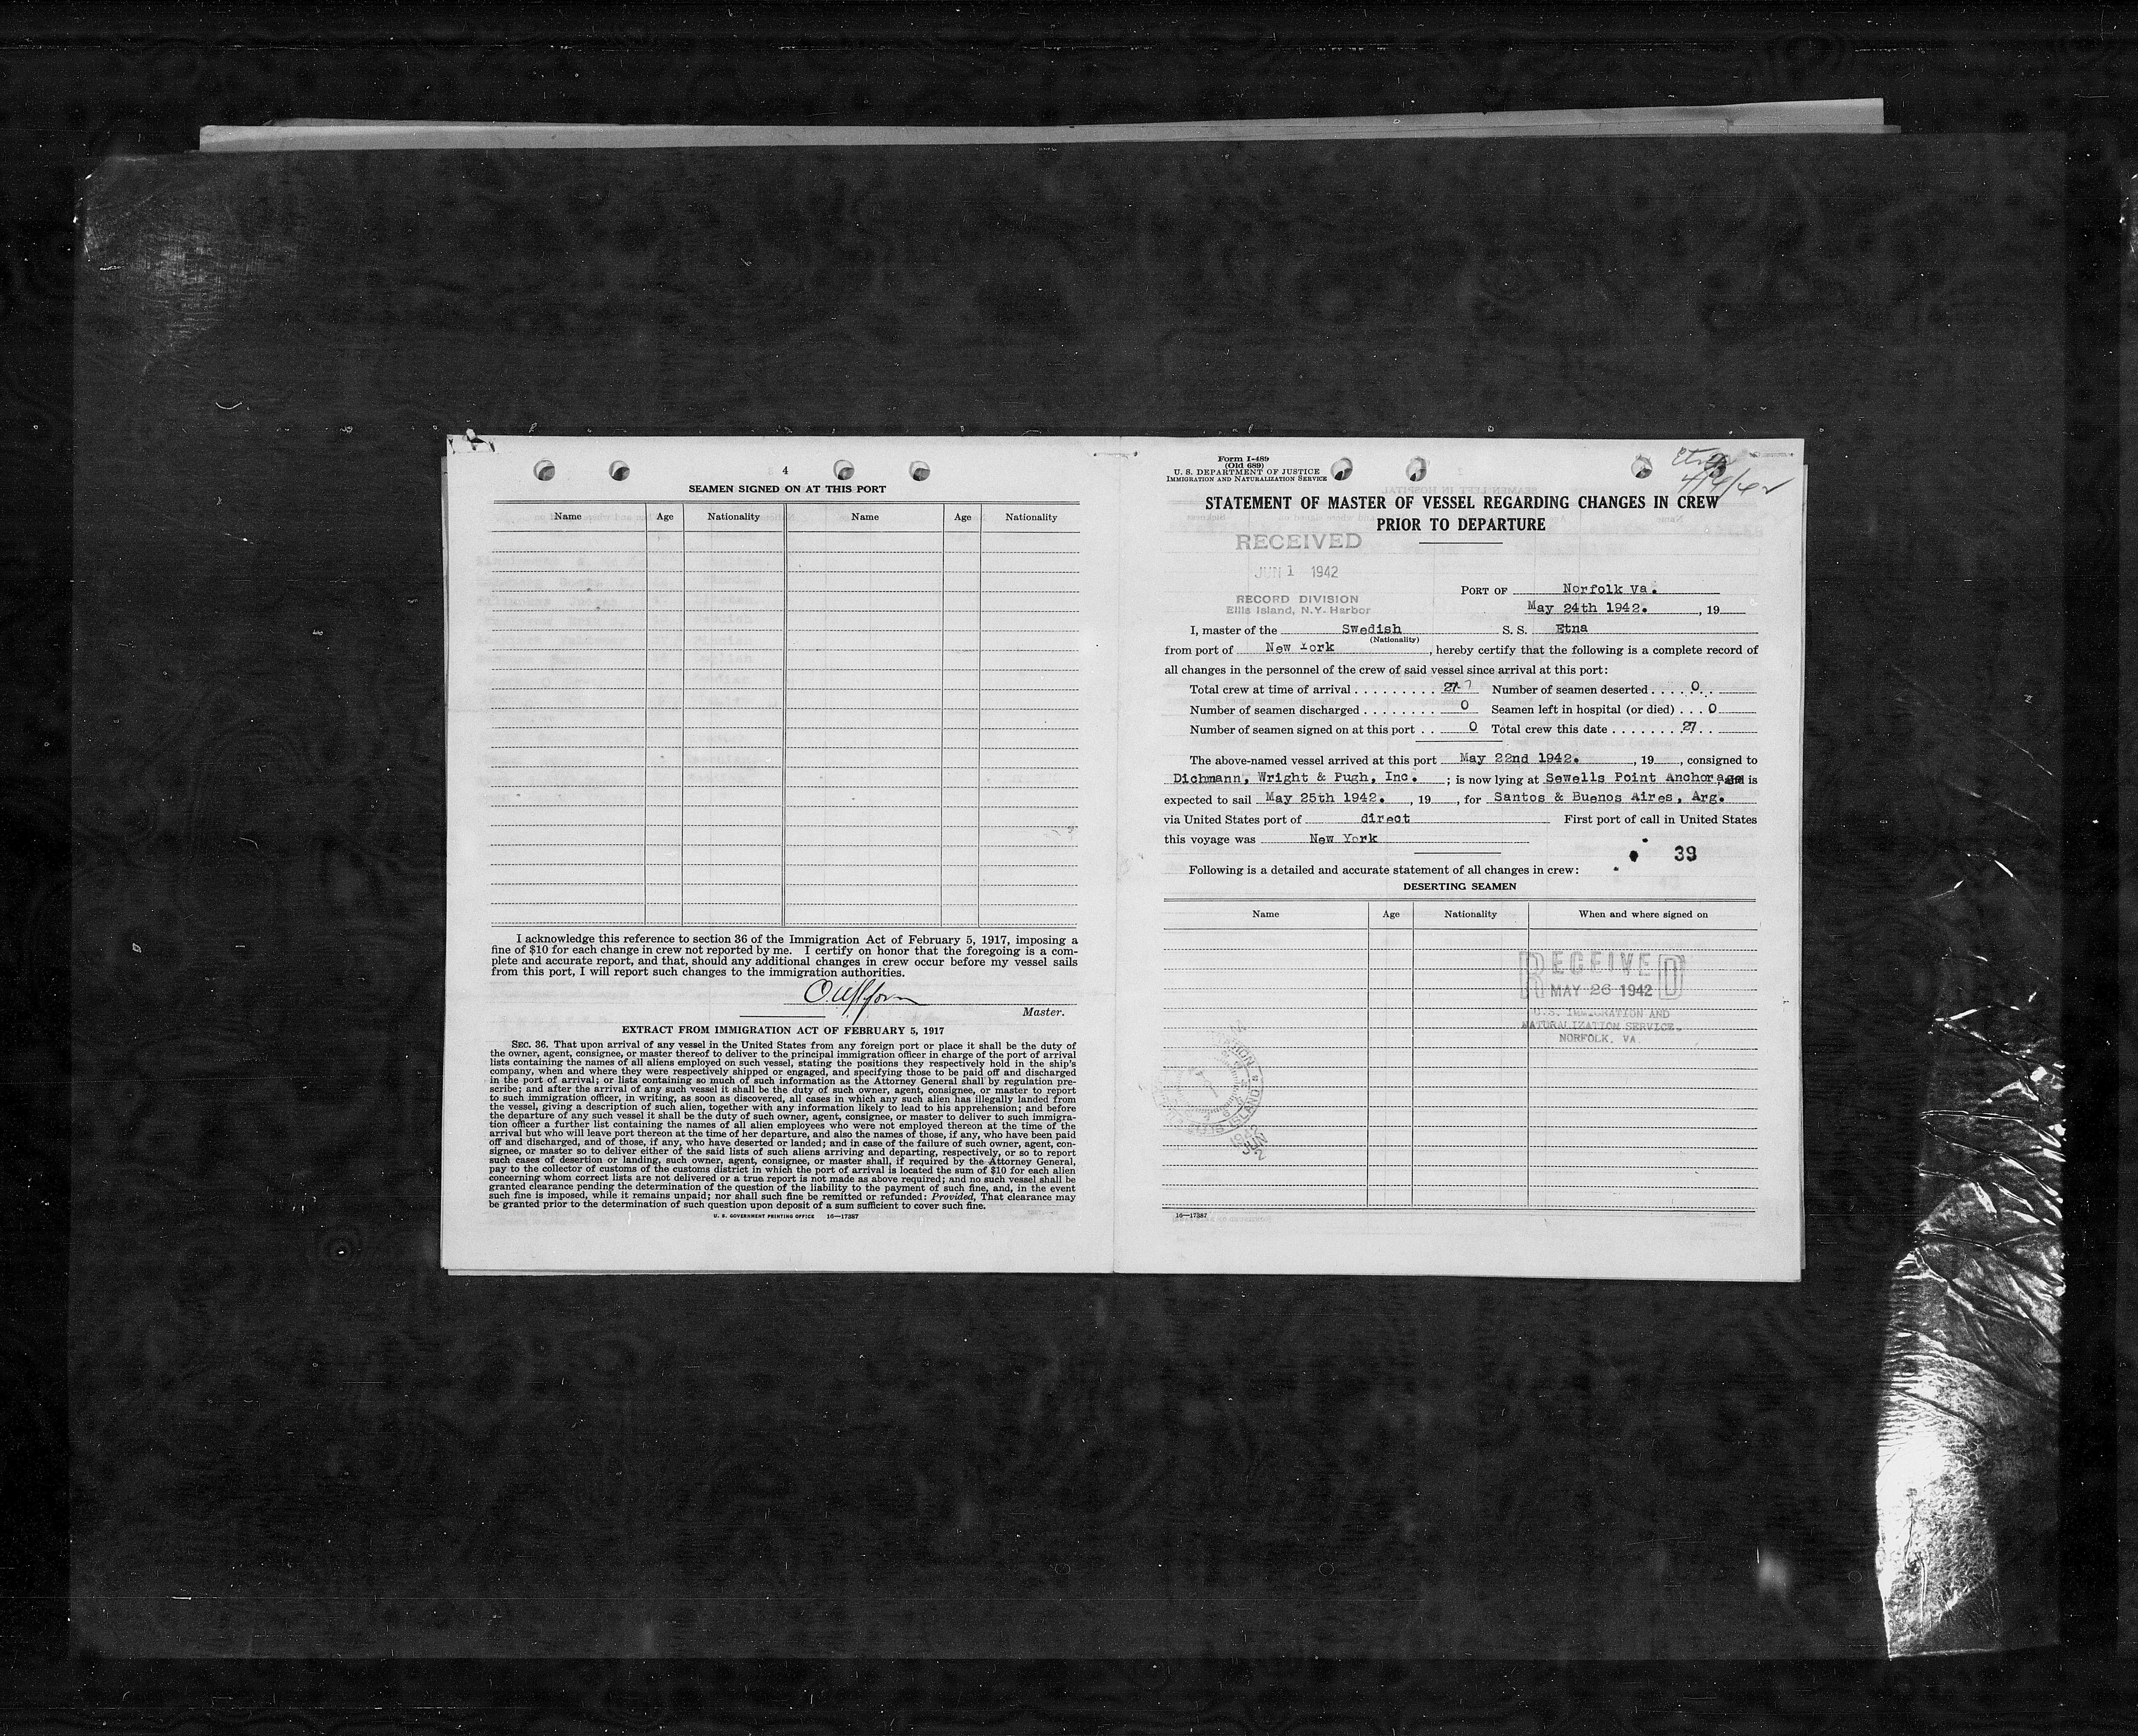 4
SEAMEN SIGNED ON AT THIS PORT
Name Age Nationality Name Age Nationality
I acknowledge this reference to section 36 of the Immigration Act of February 5, 1917, imposing a
fine of $10 for each change in crew not reported by me. I certify on honor that the foregoing is a com-
plete and accurate report, and that, should any additional changes in crew occur before my vessel sails
from this port, I will report such changes to the immigration authorities.
Master.
EXTRACT FROM IMMIGRATION ACT OF FEBRUARY 5, 1917
SEC. 36. That upon arrival of any vessel in the United States from any foreign port or place it shall be the duty of
the owner, agent, consignee, or master thereof to deliver to the principal immigration officer in charge of the port of arrival
lists containing the names of all aliens employed on such vessel, stating the positions they respectively hold in the ship's
company, when and where they were respectively shipped or engaged, and specifying those to be paid off and discharged
in the port of arrival; or lists containing so much of such information as the Attorney General shall by regulation pre-
scribe; and after the arrival of any such vessel it shall be the duty of such owner, agent, consignee, or master to report
to such immigration officer, in writing, as soon as discovered, all cases in which any such alien has illegally landed from
the vessel, giving a description of such alien, together with any information likely to lead to his apprehension; and before
the departure of any such vessel it shall be the duty of such owner, agent, consignee, or master to deliver to such immigra-
tion officer a further list containing the names of all alien employees who were not employed thereon at the time of the
arrival but who will leave port thereon at the time of her departure, and also the names of those, if any, who have been paid
off and discharged, and of those, if any, who have deserted or landed; and in case of the failure of such owner, agent, con-
signee, or master so to deliver either of the said lists of such aliens arriving and departing, respectively, or so to report
such cases of desertion or landing, such owner, agent, consignee, or master shall, if required by the Attorney General,
pay to the collector of customs of the customs district in which the port of arrival is located the sum of $10 for each alien
concerning whom correct lists are not delivered or a true report is not made as above required; and no such vessel shall be
granted clearance pending the determination of the question of the liability to the payment of such fine, and, in the event
such fine is imposed, while it remains unpaid; nor shall such fine be remitted or refunded: Provided, That clearance may
be granted prior to the determination of such question upon deposit of a sum sufficient to cover such fine.
U. S. GOVERNMENT PRINTING OFFICE 16—17387
Form I-489
(Old 689)
U. S. DEPARTMENT OF JUSTICE
IMMIGRATION AND NATURALIZATION SERVICE
Etna
STATEMENT OF MASTER OF VESSEL REGARDING CHANGES IN CREW
PRIOR TO DEPARTURE
RECEIVED
JUN 1 1942
RECORD DIVISION
Ellis Island, N.Y. Harbor
PORT OF Norfolk Va.
May 24th 1942. , 19
I, master of the Swedish S. S. Etna
(Nationality)
from port of New York , hereby certify that the following is a complete record of
all changes in the personnel of the crew of said vessel since arrival at this port:
Total crew at time of arrival 27 Number of seamen deserted 0
Number of seamen discharged 0 Seamen left in hospital (or died) 0
Number of seamen signed on at this port 0 Total crew this date 27
The above-named vessel arrived at this port May 22nd 1942. , 19 , consigned to
Dichmann, Wright & Pugh, Inc. ; is now lying at Sewells Point Anchorage, and is
expected to sail May 25th 1942. , 19 , for Santos & Buenos Aires, Arg.
via United States port of direct First port of call in United States
this voyage was New York
39
Following is a detailed and accurate statement of all changes in crew:
DESERTING SEAMEN
Name Age Nationality When and where signed on
RECEIVED
MAY 26 1942
U.S. IMMIGRATION AND
NATURALIZATION SERVICE.
NORFOLK, VA.
16—17387